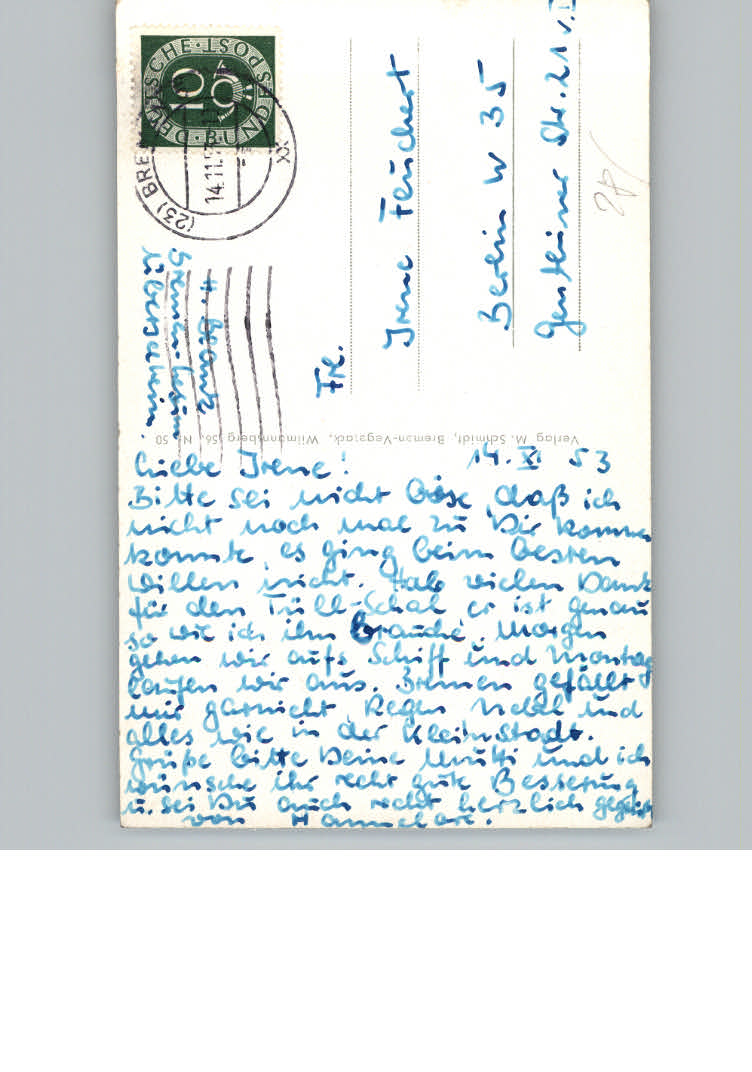 DEUTSCHE BUNDESPOST
10
(23) BRE
14.11.5
H. 
Bremen-Lesum
Frl.
Irene Feuchert
Berlin W 35
Genthiner Str. 21 v. II
28/
Verlag M. Schmidt, Bremen-Vegesack, Wilmannsberg 56, Nr. 50
14. XI 53
Liebe Irene!
Bitte sei nicht böse, daß ich
nicht noch mal zu Dir kommen
konnte, es ging beim besten
Willen nicht. Hab vielen Dank
für den Tüll-Schal er ist genau
so wie ich ihn brauche. Morgen
gehen wir aufs Schiff und Montag
laufen wir aus. Bremen gefällt
mir garnicht Regen Nebel und
alles wie in der Kleinstadt.
Grüße bitte Deine Mutti und ich
wünsche ihr recht gute Besserung
u. sei Du auch recht herzlich gegrüßt
von Hannelore.